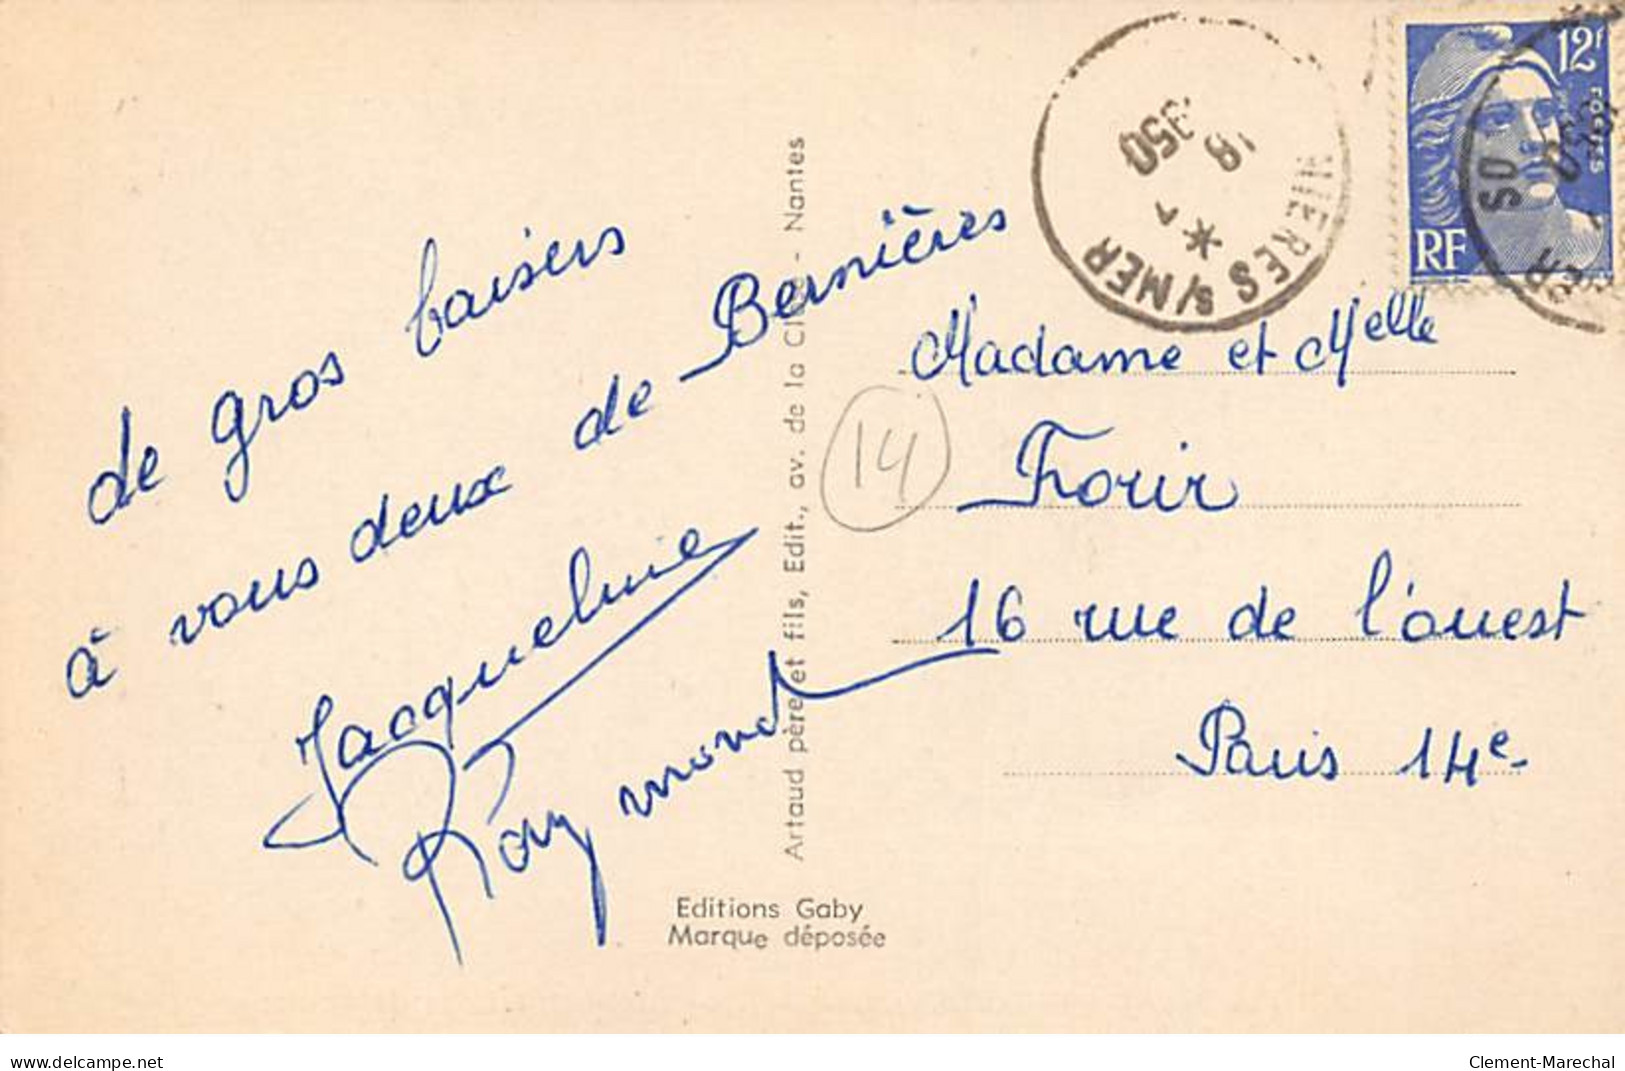 de gros baisers
à vous deux de Bernières
Jacqueline
Raymond
Artaud père et fils, Edit., av. de la - Nantes
Editions Gaby
Marque déposée
NIERES S/MER
18
50
12F
POSTES
RF
50
14
Madame et Melle
Forir
16 rue de l'ouest
Paris 14e
www.delcampe.net
Clement-Marechal